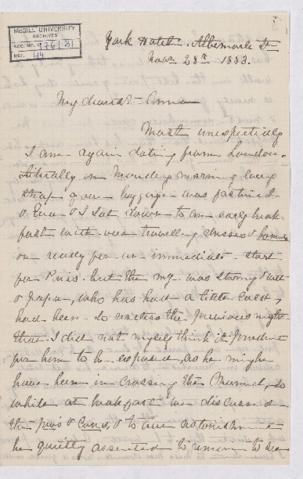 McGILL UNIVERSITY
ARCHIVES
ACC. NO. 976/31
REF. 44
York Hotel - Albemarle St
Novr 28th 1883.
My dearest Anna
Most unexpectedly
I am again dating from London.
Literally on Monday morning every
strap over luggage was fastened
& Eva & I sat down to an early break
fast with our travelling dresses &
on ready for an immediate start
for Paris. but the was strong
& Papa, who has had a little
had been so the previous night
that I did not myself think it prudent
for him to be exposed, as he might
have been in crossing the Channel, so
while at breakfast we discussed
the pros & cons, & to our astonishment
he quietly assented to remain